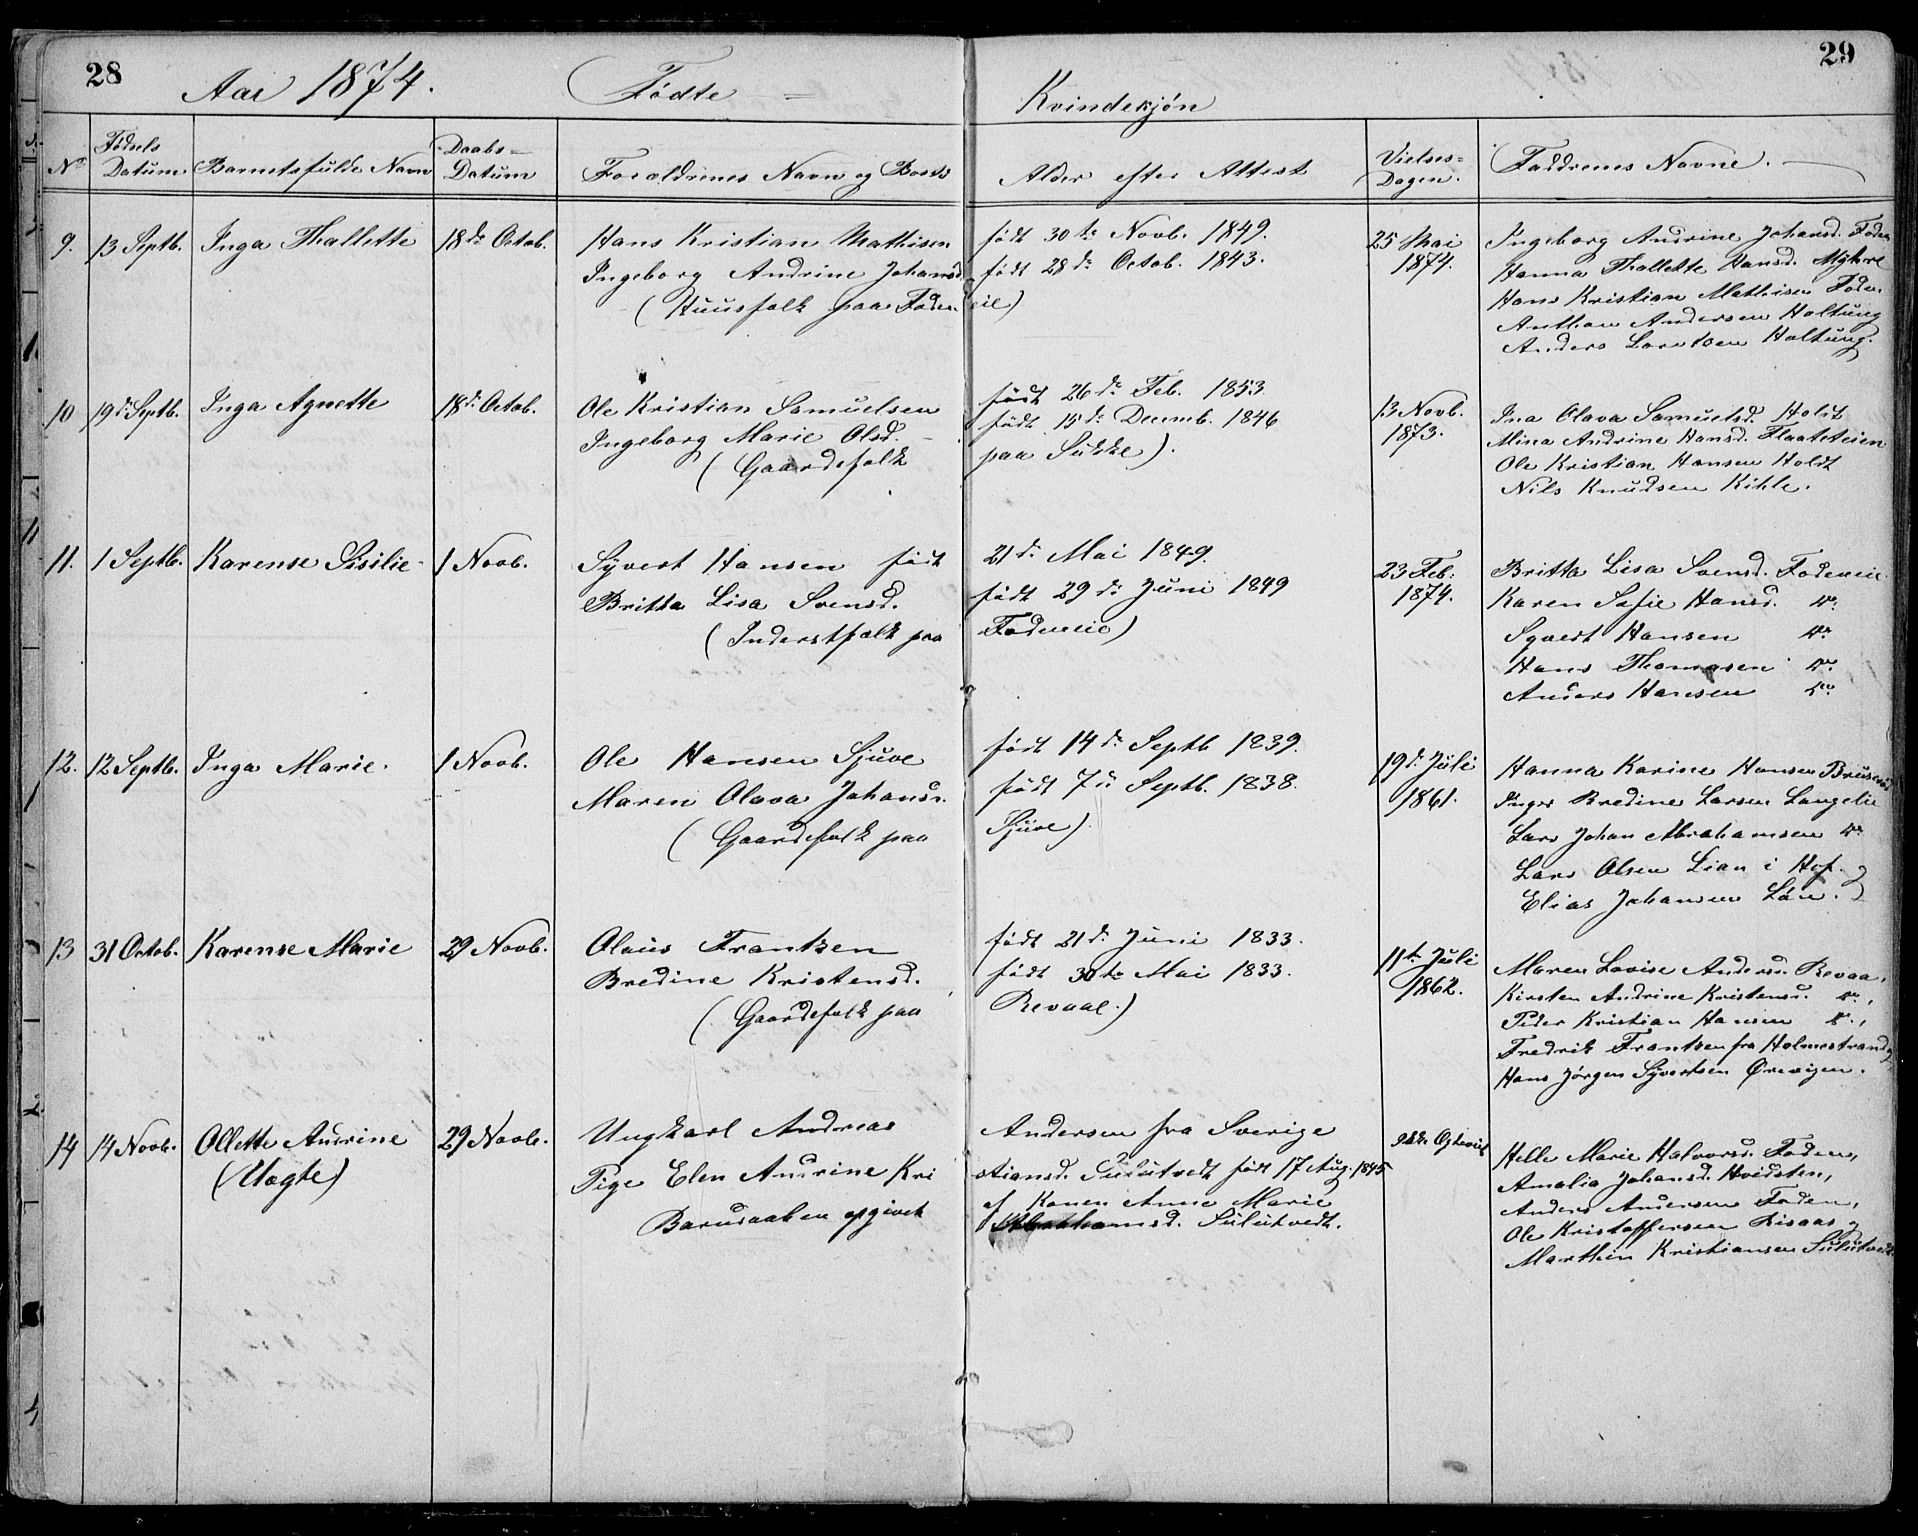 28
29
Aar 1874.
Fødte
Kvindekjøn
No
Fødsels Datum
Barnets fulde Navn
Daabs- Datum
Forældrenes Navn og Bosted
Alder efter Attest
Vielses- Dagen.
Faddrenes Navne.
9.
13 Septb.
Inga Thallette
18de Octob.
Hans Kristian Mathisen
født 30te Novb. 1849.
Ingeborg Andrine Johansd.
født 28de Octob. 1843.
(Huusfolk paa Fodeneie)
25 Mai
1874.
Ingeborg Andrine Johansd. Foden
Hanna Thallette Hansd. Myhre
Hans Kristian Mathisen Foden
Anthon Andersen Holtung
Anders Larntsen Holtung.
10
19de Septb.
Inga Agnette
18de Octob.
Ole Kristian Samuelsen
født 26de Feb. 1853
Ingeborg Marie Olsd.
født 15de Decemb. 1846
(Gaardefolk
paa Sukke).
13 Novb.
1873.
Ina Olava Samuelsd. Holdt
Mina Andrine Hansd. Flaateteien
Ole Kristian Hansen Holdt
Nils Knudsen Kihle.
11.
1 Septb.
Karense Sisilie
1 Novb.
Syvert Hansen født
21de Mai 1849.
Britta Lisa Svensd.
født 29de Juni 1849
(Inderstfolk paa
Fodeneie)
23 Feb.
1874.
Britta Lisa Svensd. Fodeneie
Karen Sofie Hansd. do.
Syvert Hansen do.
Hans Thomasen do.
Anders Hansen do.
12.
12 Septb.
Inga Marie.
1 Novb.
Ole Hansen Sjuve
født 14de Septb 1839.
Maren Olava Johansd.
født 7de Septb. 1838.
(Gaardefolk paa
Sjuve)
19de Juli
1861.
Hanna Karine Hansen Bruserød
Inger Bredine Larsen Langelie
Lars Johan Abrahamsen do
Lars Olsen Lian i Hof. og
Elias Johansen Løn.
13
31 Octob.
Karense Marie
29 Novb.
Olaus Frantzen
født 21de Juni 1833.
Bredine Kristensd.
født 30te Mai 1833.
(Gaardefolk paa
Revaal.)
11te Juli
1862.
Maren Lovise Andersd. Revaa,
Kirsten Andrine Kristensd. do.,
Peder Kristian Hansen do.,
Fredrik Frantzen fra Holmestrand og
Hans Jørgen Syvertsen Ørevigen.
14
14 Novb.
Ollette Andrine
(Uægte)
29 Novb.
Ungkarl Andreas
Andersen fra Sverige
Pige Elen Andrine Kri
stiansd. Sulutvedt født 17 Aug. 1845
Barnsaaben opgivet
af Konen Anne Marie
Abrahamsd. Sulutvedt.
Helle Marie Halvorsd. Foden,
Amalia Johansd. Hvidsten,
Anders Andersen Foden,
Ole Kristoffersen Risaas og
Marthin Kristiansen Sulutvedt